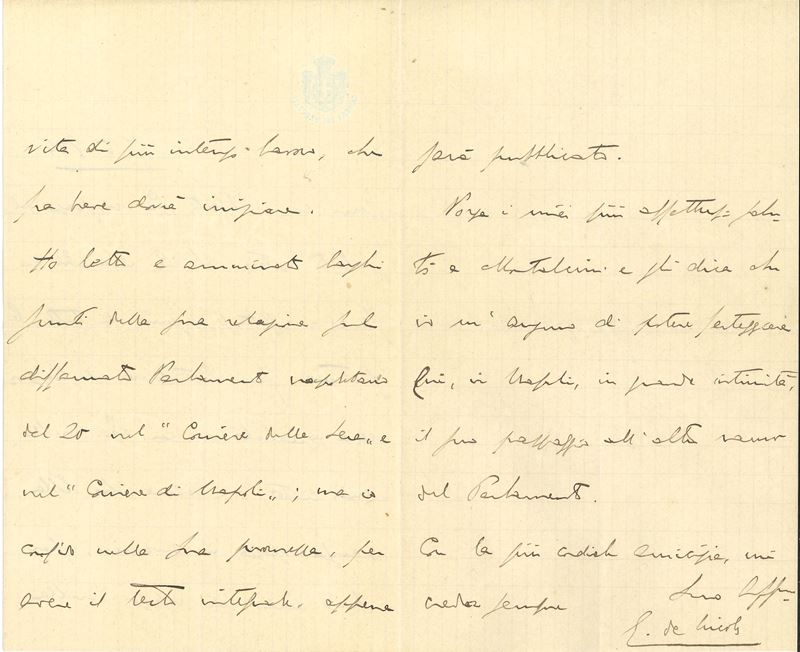 vita di più intenso lavoro, che
fra breve dovrà iniziare.
Ho letto e ammirato larghi
sunti della sua relazione sul
diffamato Parlamento napoletano
del 20 nel "Corriere della Sera„ e
nel "Corriere di Napoli„; ma io
confido nella sua promessa, per
avere il testo integrale, appena
sarà pubblicato.
Porga i miei più affettuosi salu-
ti a Montalcini e gli dica che
io m'auguro di potere festeggiare
qui, in Napoli, in grande intimità,
il suo passaggio all'alto ramo
del Parlamento.
Con la più cordiale amicizia, mi
creda sempre
Suo aff.mo
E. de Nicola